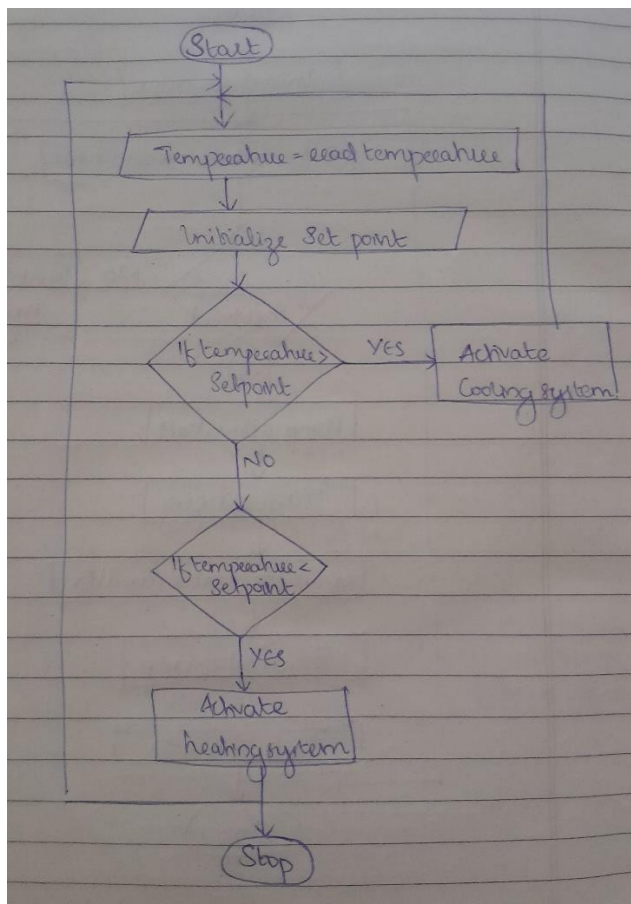 Start
Temperature = read temperature
Initialize Set point
If temperature >
Setpoint
YES
Activate
Cooling system
NO
If temperature <
Setpoint
YES
Activate
heating system
Stop